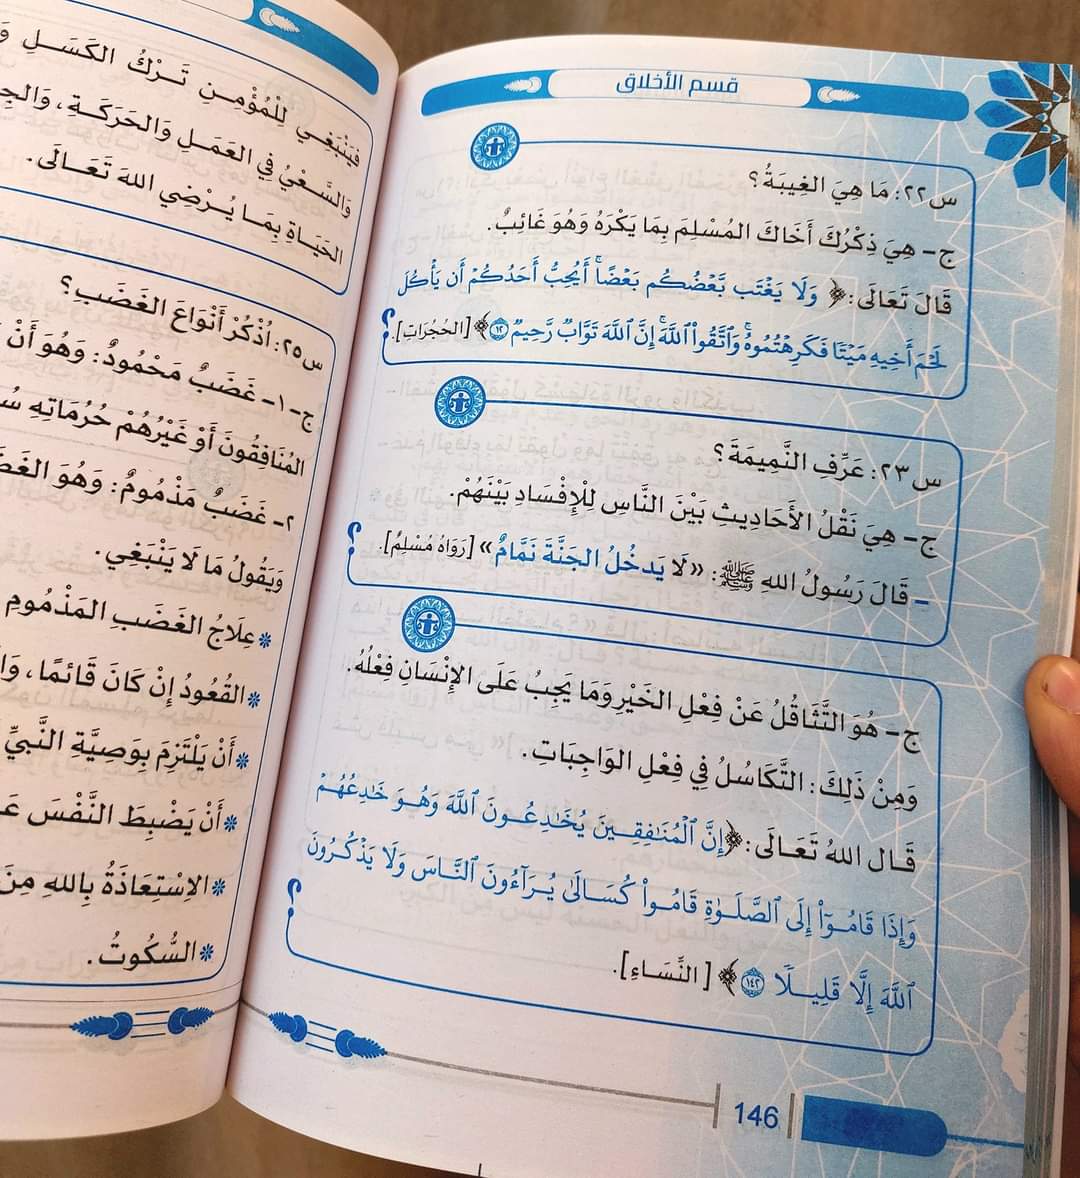 قسم الأخلاق
س٢٢: مَا هِيَ الغِيبَةُ؟
ج- هِيَ ذِكْرُكَ أَخَاكَ المُسْلِمَ بِمَا يَكْرَهُ وَهُوَ غَائِبٌ.
قَالَ تَعَالَى: ﴿ وَلَا يَغْتَب بَّعْضُكُم بَعْضًا ۚ أَيُحِبُّ أَحَدُكُمْ أَن يَأْكُلَ
لَحْمَ أَخِيهِ مَيْتًا فَكَرِهْتُمُوهُ ۚ وَاتَّقُوا اللَّهَ ۚ إِنَّ اللَّهَ تَوَّابٌ رَّحِيمٌ ١٢ ﴾ [الحُجُرَاتِ].
س٢٣: عَرِّفِ النَّمِيمَةَ؟
ج- هِيَ نَقْلُ الأَحَادِيثِ بَيْنَ النَّاسِ لِلْإِفْسَادِ بَيْنَهُمْ.
- قَالَ رَسُولُ اللهِ ﷺ: «لَا يَدخُلُ الجَنَّةَ نَمَّامٌ» [رَوَاهُ مُسْلِمٌ].
ج- هُوَ التَّثَاقُلُ عَنْ فِعْلِ الخَيْرِ وَمَا يَجِبُ عَلَى الإِنْسَانِ فِعْلُهُ.
وَمِنْ ذَلِكَ: التَّكَاسُلُ فِي فِعْلِ الوَاجِبَاتِ.
قَال اللهُ تَعَالَى: ﴿إِنَّ الْمُنَافِقِينَ يُخَادِعُونَ اللَّهَ وَهُوَ خَادِعُهُمْ
وَإِذَا قَامُوا إِلَى الصَّلَوٰةِ قَامُوا كُسَالَىٰ يُرَاءُونَ النَّاسَ وَلَا يَذْكُرُونَ
اللَّهَ إِلَّا قَلِيلًا ١٤٢ ﴾ [النِّسَاءِ].
146
فَيَنْبَغِي لِلْمُؤْمِنِ تَرْكُ الكَسَلِ
وَالسَّعْيُ فِي العَمَلِ وَالحَرَكَةِ،
الحَيَاةِ بِمَا يُرْضِي اللهَ تَعَالَى.
س٢٥: اُذْكُرْ أَنْوَاعَ الغَضَبِ؟
ج-١- غَضَبٌ مَحْمُودٌ: وَهُوَ أَنْ
المُنَافِقُونَ أَوْ غَيْرُهُمْ حُرُمَاتِهِ
٢- غَضَبٌ مَذْمُومٌ: وَهُوَ
وَيَقُولُ مَا لَا يَنْبَغِي.
* عِلَاجُ الغَضَبِ المَذْمُومِ
* القُعُودُ إِنْ كَانَ قَائِمًا،
* أَنْ يَلْتَزِمَ بِوَصِيَّةِ النَّبِيِّ
* أَنْ يَضْبِطَ النَّفْسَ
* الاِسْتِعَاذَةُ بِاللهِ مِنَ
* السُّكُوتُ.